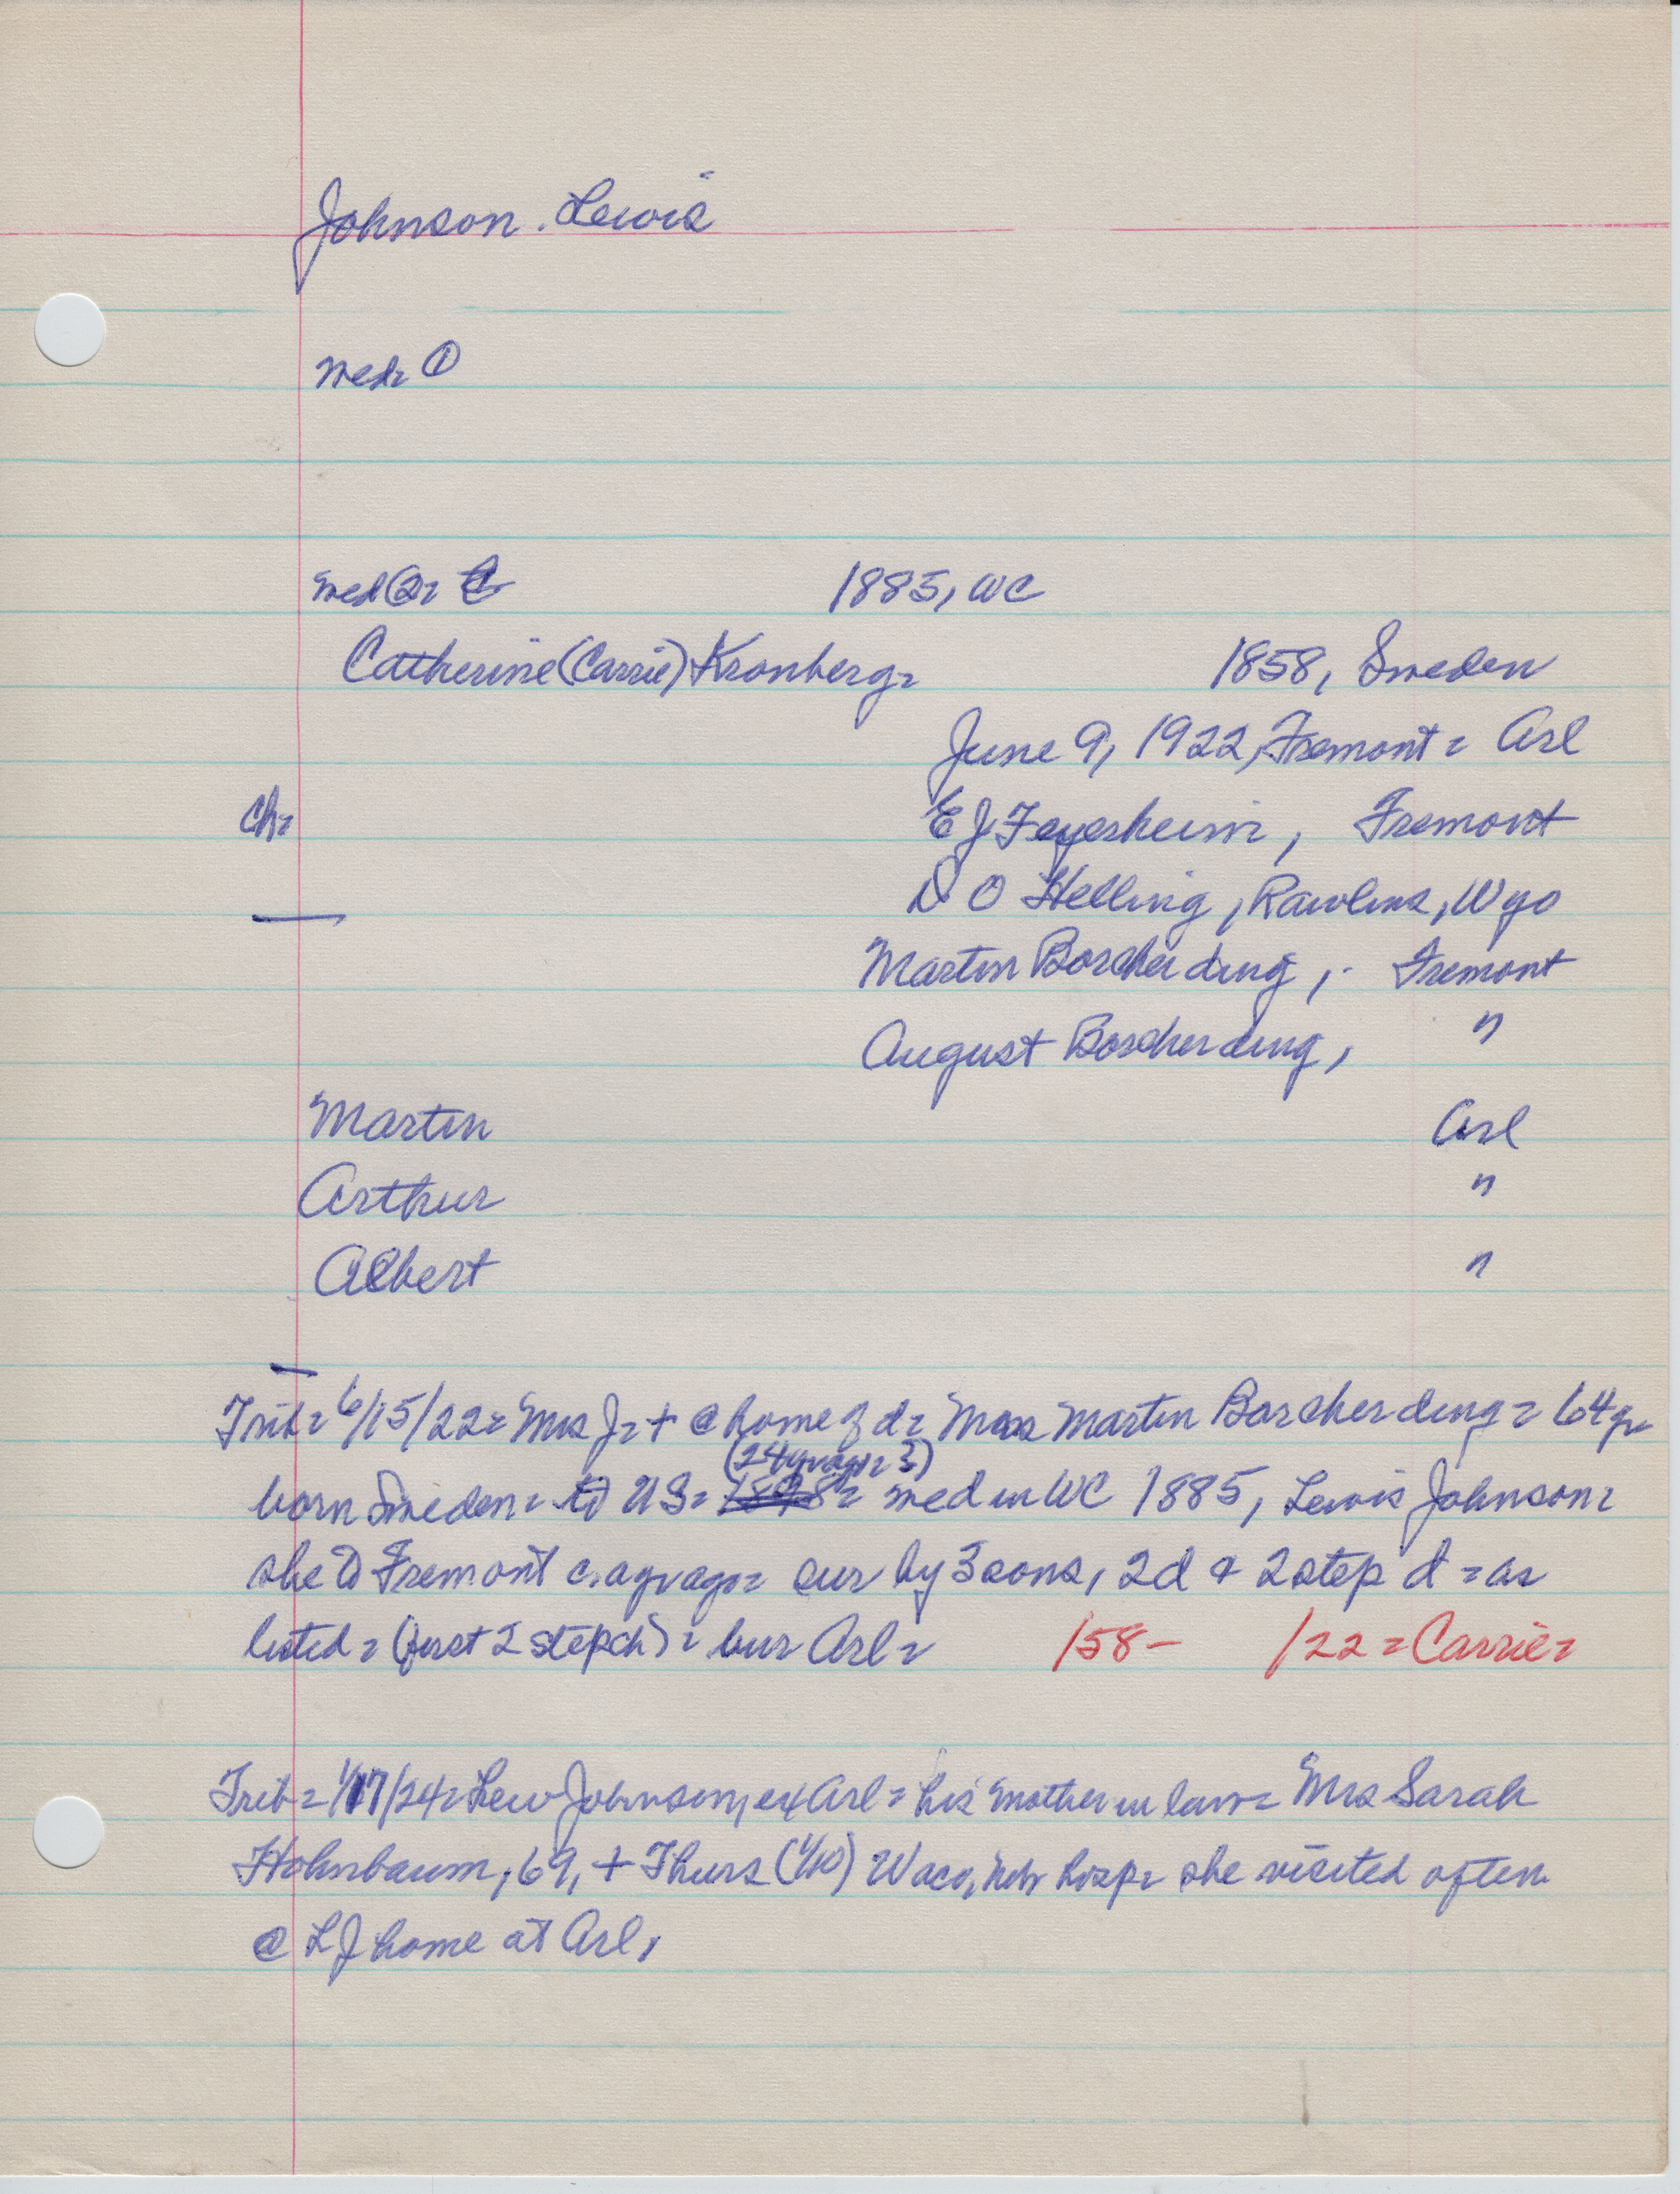 Johnson. Lewis
med= ①
med②=
1885, WC
Catherine (Carrie) Kronberg=
1858, Sweden
June 9, 1922, Fremont = Arl
ch=
E J Feyesheim, Fremont
D O Helling, Rawlins, Wyo
Martin Borcherding, Fremont
August Borcherding, "
Martin Arl
Arthur "
Albert "
Trib= 6/15/22= Mrs J= + @ home of d= Mrs Martin Borcherding= 64 yr
(24 yrs ago= ?)
born Sweden= to US= med in WC 1885, Lewis Johnson=
she to Fremont c. a yr ago= sur by 3 sons, 2d & 2 step d = as
listed = (first 2 step ch) = bur Arl= /58- /22=Carrie=
Trib= 1/17/24= Lew Johnson, ex Arl= his mother in law= Mrs Sarah
Hohnbaum, 69, + Thurs (1/10) Waco, Neb hosp= she visited often
@ LJ home at Arl,